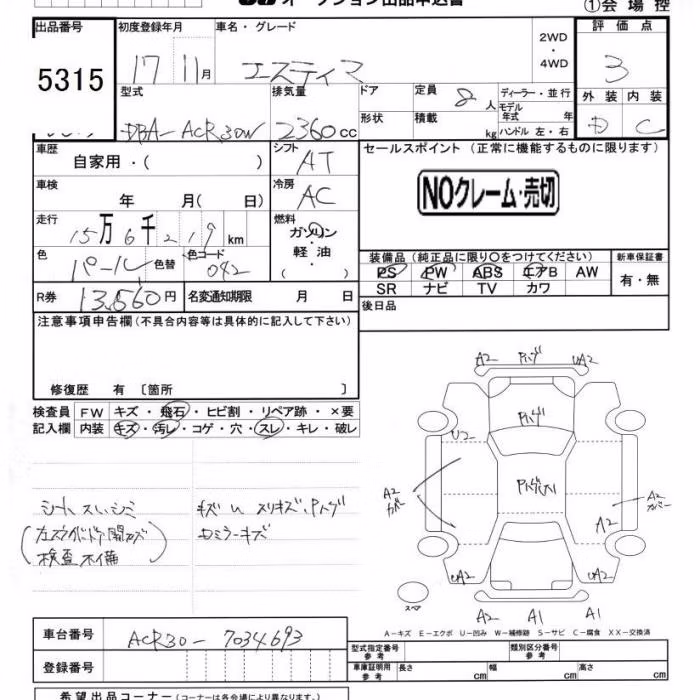 オークション出品申込書
①会場控
出品番号
5315
初度登録年月
17 11月
車名・グレード
エスティマ
2WD
・
4WD
評価点
3
型式
DBA-ACR30W
排気量
2360cc
ドア
形状
定員 8人
積載 kg
ディーラー・並行
モデル年式 年
ハンドル 左・右
外装 内装
D C
車歴
自家用・( )
シフト
AT
セールスポイント(正常に機能するものに限ります)
NOクレーム・売切
車検
年 月(日)
冷房
AC
走行
15万6千219km
燃料
ガソリン
・
軽油
( )
色
パール
色替
色コード
042
装備品(純正品に限り○をつけてください)
PS PW ABS エアB AW
SR ナビ TV カワ
新車保証書
有・無
R券
13,560円
名変通知期限 月 日
後日品
注意事項申告欄(不具合内容等は具体的に記入して下さい)
修復歴 有〔箇所 〕
検査員
記入欄
FW キズ・飛石・ヒビ割・リペア跡・×要
内装 キズ・汚レ・コゲ・穴・スレ・キレ・破レ
シート スレ、シミ
検査不備
キズ U スリキズ、Pハゲ
ロミラーキズ
A2 Pハゲ UA2
Pハゲ
U2
A2
カバー
A2
A2
カバー
UA2
UA2
スペア
A2 A1 A1
A-キズ E-エクボ U-凹み W-補修跡 S-サビ C-腐食 XX-交換済
車台番号
ACR30-7034693
登録番号
型式指定番号
参考
類別区分番号
参考
車庫証明用
参考
長さ cm 幅 cm 高さ cm
希望出品コーナー(コーナーは各会場により異なります)